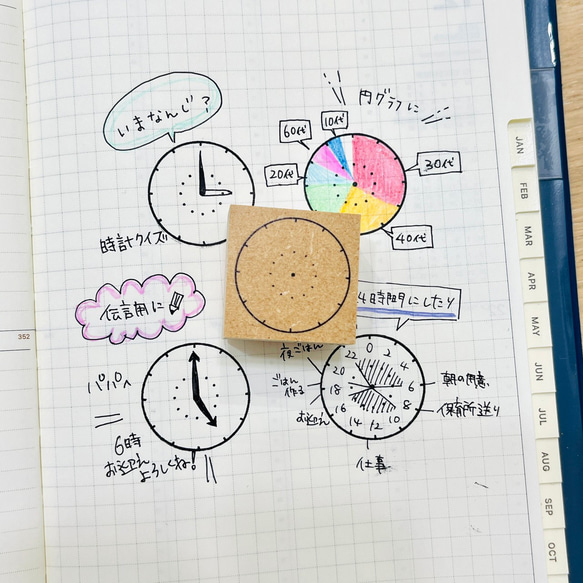 いまなんじ？
時計クイズ
円グラフに
60代
10代
20代
30代
40代
伝言用に
パパへ
6時
お迎え
よろしくね!
4時間にしたり
夜ごはん
ごはん
作る
お迎え
0
2
4
6
8
10
12
14
16
18
20
22
朝の用意
保育所送り
仕事
352
JAN
FEB
MAR
APR
MAY
JUN
JUL
AUG
SEP
OCT